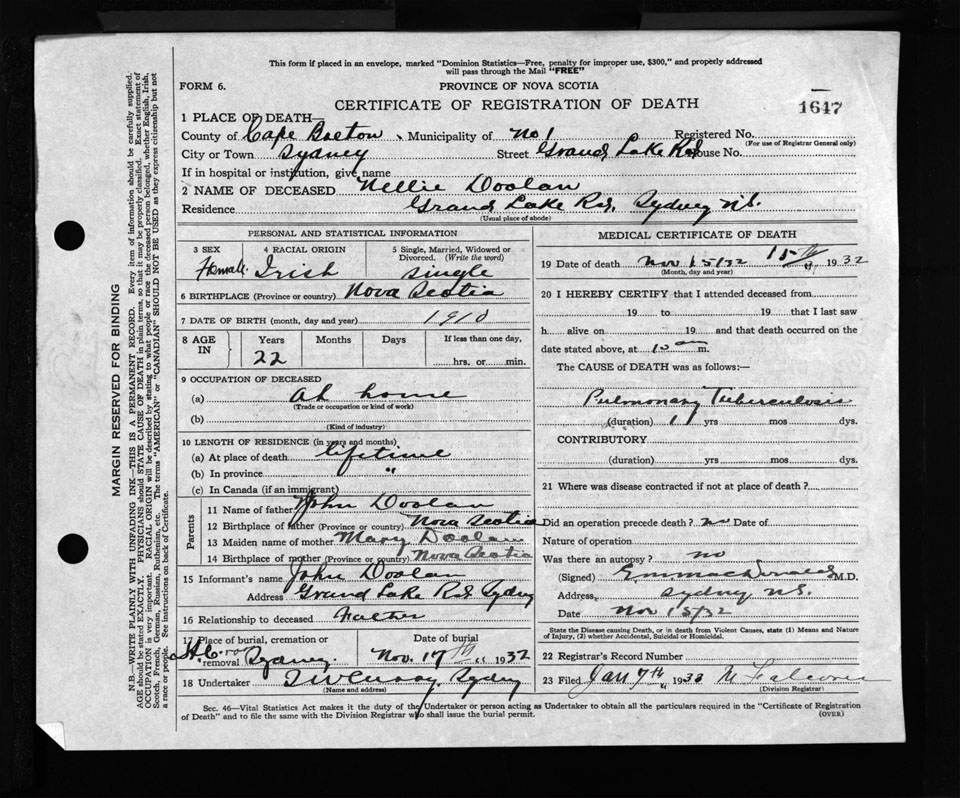 This form if placed in an envelope, marked "Dominion Statistics—Free, penalty for improper use, $300," and properly addressed
will pass through the Mail "FREE"
FORM 6.
PROVINCE OF NOVA SCOTIA
CERTIFICATE OF REGISTRATION OF DEATH
1647
1 PLACE OF DEATH—
County of Cape Breton Municipality of No 1 Registered No.
(For use of Registrar General only)
City or Town Sydney Street Grand Lake Rd House No.
If in hospital or institution, give name
2 NAME OF DECEASED Nellie Doolan
Residence Grand Lake Rd, Sydney N.S.
(Usual place of abode)
PERSONAL AND STATISTICAL INFORMATION
3 SEX 4 RACIAL ORIGIN 5 Single, Married, Widowed or
Divorced. (Write the word)
Female Irish Single
6 BIRTHPLACE (Province or country) Nova Scotia
7 DATE OF BIRTH (month, day and year) 1910
8 AGE IN Years Months Days If less than one day,
22 hrs. or min.
9 OCCUPATION OF DECEASED
(a) At home
(Trade or occupation or kind of work)
(b)
(Kind of industry)
10 LENGTH OF RESIDENCE (in years and months)
(a) At place of death lifetime
(b) In province "
(c) In Canada (if an immigrant)
Parents
11 Name of father John Doolan
12 Birthplace of father (Province or country) Nova Scotia
13 Maiden name of mother Mary Doolan
14 Birthplace of mother (Province or country) Nova Scotia
15 Informant's name John Doolan
Address Grand Lake Rd, Sydney
16 Relationship to deceased Father
17 Place of burial, cremation or removal Sydney
Date of burial Nov. 17th 1932
18 Undertaker Sydney
(Name and address)
MEDICAL CERTIFICATE OF DEATH
19 Date of death Nov 15/32 15th 11 1932
(Month, day and year)
20 I HEREBY CERTIFY that I attended deceased from
19 to 19 that I last saw
h alive on 19 and that death occurred on the
date stated above, at 10 am m.
The CAUSE of DEATH was as follows:—
Pulmonary Tuberculosis
(duration) 1 yrs mos dys.
CONTRIBUTORY
(duration) yrs mos dys.
21 Where was disease contracted if not at place of death?
Did an operation precede death? no Date of
Nature of operation
Was there an autopsy? no
(Signed) M.D.
Address Sydney N.S.
Date Nov 15/32
State the Disease causing Death, or in death from Violent Causes, state (1) Means and Nature
of Injury, (2) whether Accidental, Suicidal or Homicidal.
22 Registrar's Record Number
23 Filed Jan 7th 1933
(Division Registrar)
Sec. 46—Vital Statistics Act makes it the duty of the Undertaker or person acting as Undertaker to obtain all the particulars required in the "Certificate of Registration
of Death" and to file the same with the Division Registrar who shall issue the burial permit.
(OVER)
MARGIN RESERVED FOR BINDING
N.B.—WRITE PLAINLY WITH UNFADING INK—THIS IS A PERMANENT RECORD. Every item of information should be carefully supplied.
AGE should be stated EXACTLY. PHYSICIANS should STATE CAUSE OF DEATH in plain terms, so that it may be properly classified. Exact statement of
OCCUPATION is very important. RACIAL ORIGIN will be described by stating to what people or race the deceased person belonged, whether English, Irish,
Scotch, French, German, Russian, Ruthenian, etc. The terms "AMERICAN" or "CANADIAN" SHOULD NOT BE USED as they express citizenship but not
a race or people. See instructions on back of Certificate.